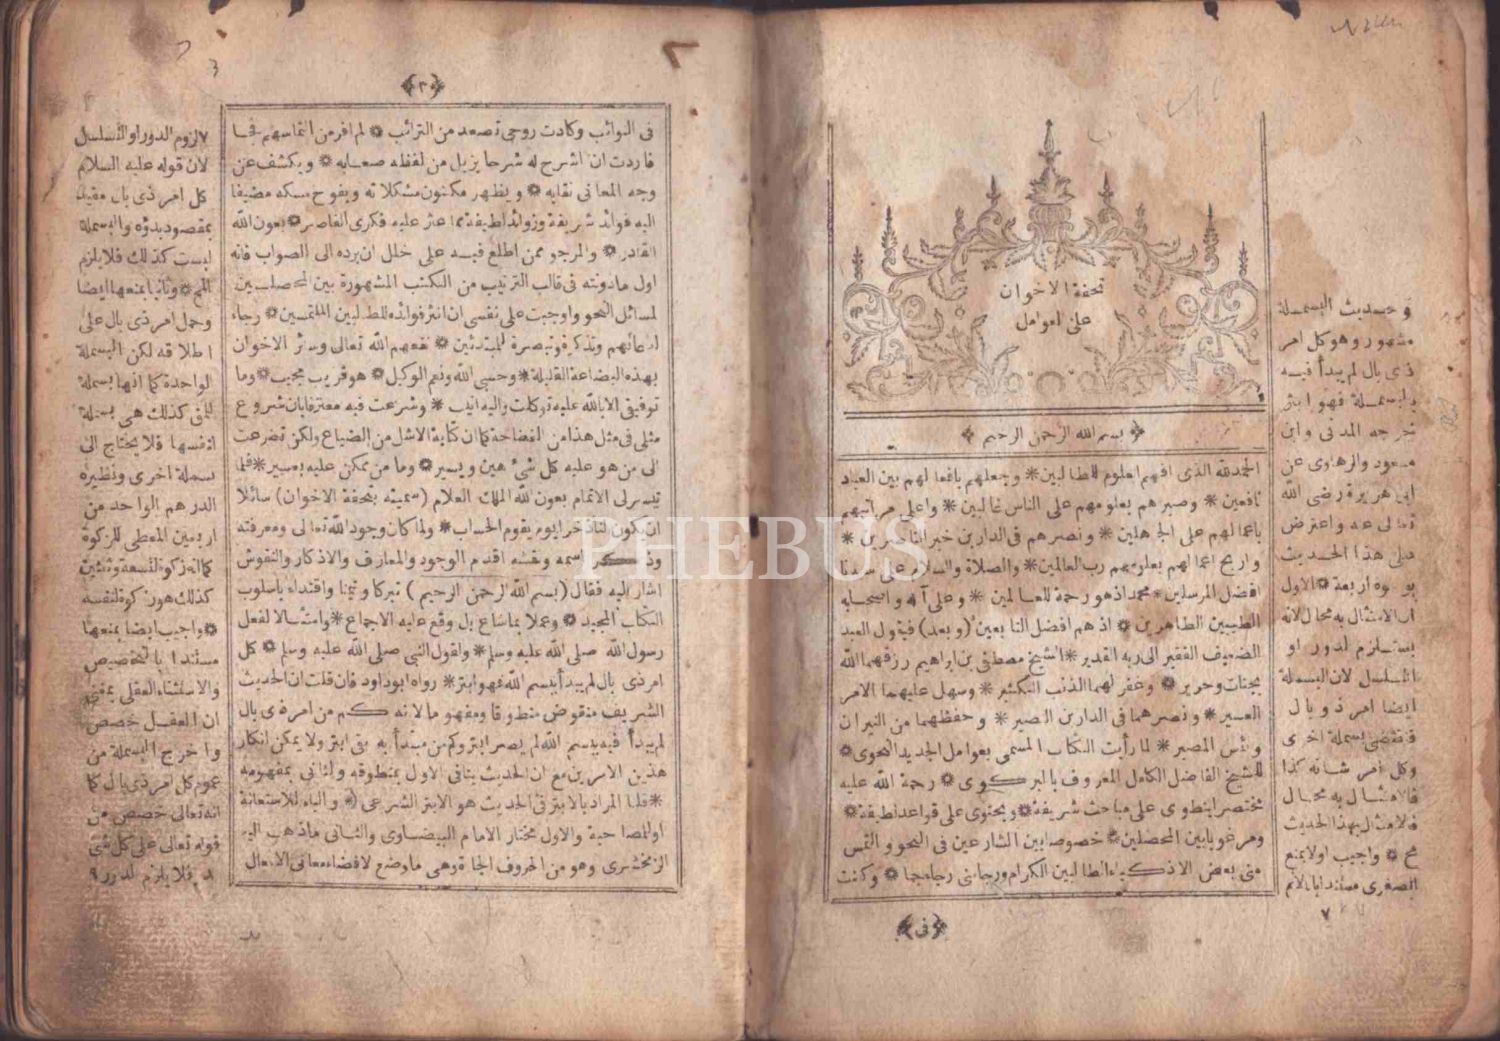 تحفة الاخوان
على العوامل
بسم الله الرحمن الرحيم
الحمد لله الذى افهم العلوم للطالبين ❋ وجعلهم بافعالهم بين العباد
نافعين ❋ وصبرهم بعلومهم على الناس غالبين ❋ واعلى مراتبهم
باعمالهم على الجاهلين ❋ ونصرهم فى الدارين خير الناصرين ❋
واربح اعمالهم بعلومهم رب العالمين ❋ والصلاة والسلام على سيدنا
افضل المرسلين ❋ محمد اذ هو رحمة للعالمين ❋ وعلى آله واصحابه
الطيبين الطاهرين ❋ اذ هم افضل التابعين (وبعد) فيقول العبد
الضعيف الفقير الى ربه القدير ❋ الشيخ مصطفى بن ابراهيم رزقهما الله
بجنات وحرير ❋ وغفر لهما الذنب الكثير ❋ وسهل عليهما الامر
العسير ❋ ونصرهما فى الدارين النصير ❋ وحفظهما من النيران
وبئس المصير ❋ لما رأيت الكتاب المسمى بعوامل الجديد النحوى ❋
للشيخ الفاضل الكامل المعروف بالبركوى ❋ رحمة الله عليه
مختصرا ينطوى على مباحث شريفة ❋ ويحتوى على قواعد لطيفة ❋
ومرغوبا بين المحصلين ❋ خصوصا بين الشارعين فى النحو والتمس
منى بعض الاذكياء الطالبين الكرام ورجاءنى رجاء جما ❋ وكنت
﴿فى﴾
وحديث البسملة
مشهور وهو كل امر
ذى بال لم يبدأ فيه
بالبسملة فهو ابتر
خرجه المدنى وابن
مسعود والرهاوى عن
ابى هريرة رضى الله
تعالى عنه واعترض
على هذا الحديث
بوجوه اربعة ❋ الاول
ان الامتثال به محال لانه
يستلزم لدور او
التسلسل لان البسملة
ايضا امر ذو بال
فتقتضى بسملة اخرى
وكل امر شانه كذا
فالامتثال به محال
فالامتثال بهذا الحديث
مح ❋ واجيب اولا بمنع
الصغرى مستندا بالانم
٧
﴿٢﴾
فى النوائب وكادت روحى تصعد من الترائب ❋ لم افر من التماسهم فجا
فاردت ان اشرح له شرحا يزيل من لفظه صعابه ❋ ويكشف عن
وجه المعانى نقابه ❋ ويظهر مكنون مشكلاته ويفوح مسكه مضيفا
اليه فوائد شريفة وزوائد لطيفة مما عثر عليه فكرى القاصر ❋ بعون الله
القادر ❋ والمرجو ممن اطلع فيه على خلل ان يرده الى الصواب فانه
اول مادونته فى قالب الترتيب من الكتب المشهورة بين المحصلين
لمسائل النحو واوجبت على نفسى ان انثر فوائده للطالبين الملتمسين ❋ رجاء
لدعائهم وتذكرة وتبصرة للمبتدئين ❋ نفعهم الله تعالى وسائر الاخوان
بهذه البضاعة القليلة ❋ وحسبى الله ونعم الوكيل ❋ هو قريب مجيب ❋ وما
توفيقى الا بالله عليه توكلت واليه انيب ❋ وشرعت فيه معترفا بان شروع
مثلى فى مثل هذا من الفضاحة كما ان كتابة الاشل من الضياع ولكن تضرعت
الى من هو عليه كل شئ هين ويسير ❋ وما من ممكن عليه بعسير ❋ فلما
تيسر لى الاتمام بعون الله الملك العلام (سميته بتحفة الاخوان) سائلا
ان يكون لنا ذخرا يوم يقوم الحساب ❋ ولما كان وجود الله تعالى ومعرفته
وذكر اسمه ونقشه اقدم الوجود والمعارف والاذكار والنقوش
اشار اليه فقال (بسم الله الرحمن الرحيم) تبركا وتيمنا واقتداء باسلوب
الكتاب المجيد ❋ وعملا بما شاع بل وقع عليه الاجماع ❋ وامتثالا لفعل
رسول الله صلى الله عليه وسلم ❋ ولقول النبى صلى الله عليه وسلم ❋ كل
امر ذى بال لم يبدأ ببسم الله فهو ابتر ❋ رواه ابو داود فان قلت ان الحديث
الشريف منقوض منطوقا ومفهوما لانه كم من امر ذى بال
لم يبدأ فيه ببسم الله لم يصر ابتر وكم من مبتدأ به بقى ابتر ولا يمكن انكار
هذين الامرين مع ان الحديث ينافى الاول بمنطوقه والثانى بمفهومه
❋ قلنا المراد بالابتر فى الحديث هو الابتر الشرعى ❋ والباء للاستعانة
او المصاحبة والاول مختار الامام البيضاوى والثانى ما ذهب اليه
الزمخشرى وهو من الحروف الجارة وهى ما وضع لافضاء معانى الافعال
٧ لزوم الدور او التسلسل
لان قوله عليه السلام
كل امر ذى بال مقيد
بمقصود بدؤه والبسملة
ليست كذلك فلا يلزم
المح ❋ وثانيا بمنعها ايضا
وحمل امر ذى بال على
اطلاقه لكن البسملة
الواحدة كما انها بسملة
للباقى كذلك هى بسملة
لنفسها فلا يحتاج الى
بسملة اخرى ونظيره
الدرهم الواحد من
اربعين المعطى للزكوة
كما انه زكوة لتسعة وثلثين
كذلك هو زكوة لنفسه
❋ واجيب ايضا بمنعها
مستندا بالتخصيص
والاستثناء العقلى بمعنى
ان العقل خصص
واخرج البسملة من
عموم كل امر ذى بال كما
انه تعالى خصص من
قوله تعالى على كل شئ
فلا يلزم لدور ٩
PHEBUS